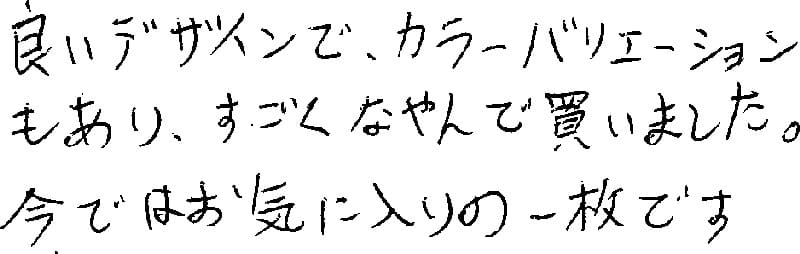 良いデザインで、カラーバリエーション
もあり、すごくなやんで買いました。
今ではお気に入りの一枚です